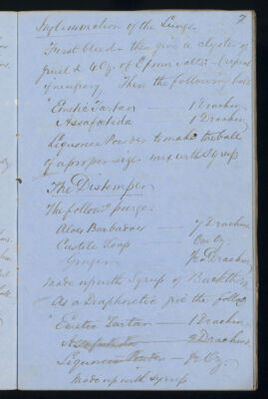 7
Inflammation of the Lungs
First bleed – then give a clyster of
gruel & 4 Oz. of Epsom salts – (repeat
if necessary) Then the following ball
Emetic Tartar — 1 Drachm
Assafœtida — 1 Drachm
Liquorice Powder to make the ball
of a proper size mix with Syrup
The Distemper
The followg purge.
Aloes Barbadoes — 7 Drachms
Castile Soap
Ginger — Drachm
Made up with Syrup of Buckthorn
As a Diaphoretic give the follow
Emetic Tartar — 1 Drachm
Assafœtida — 2 Drachms
Liquorice Powder — Oz.
Made up with syrup